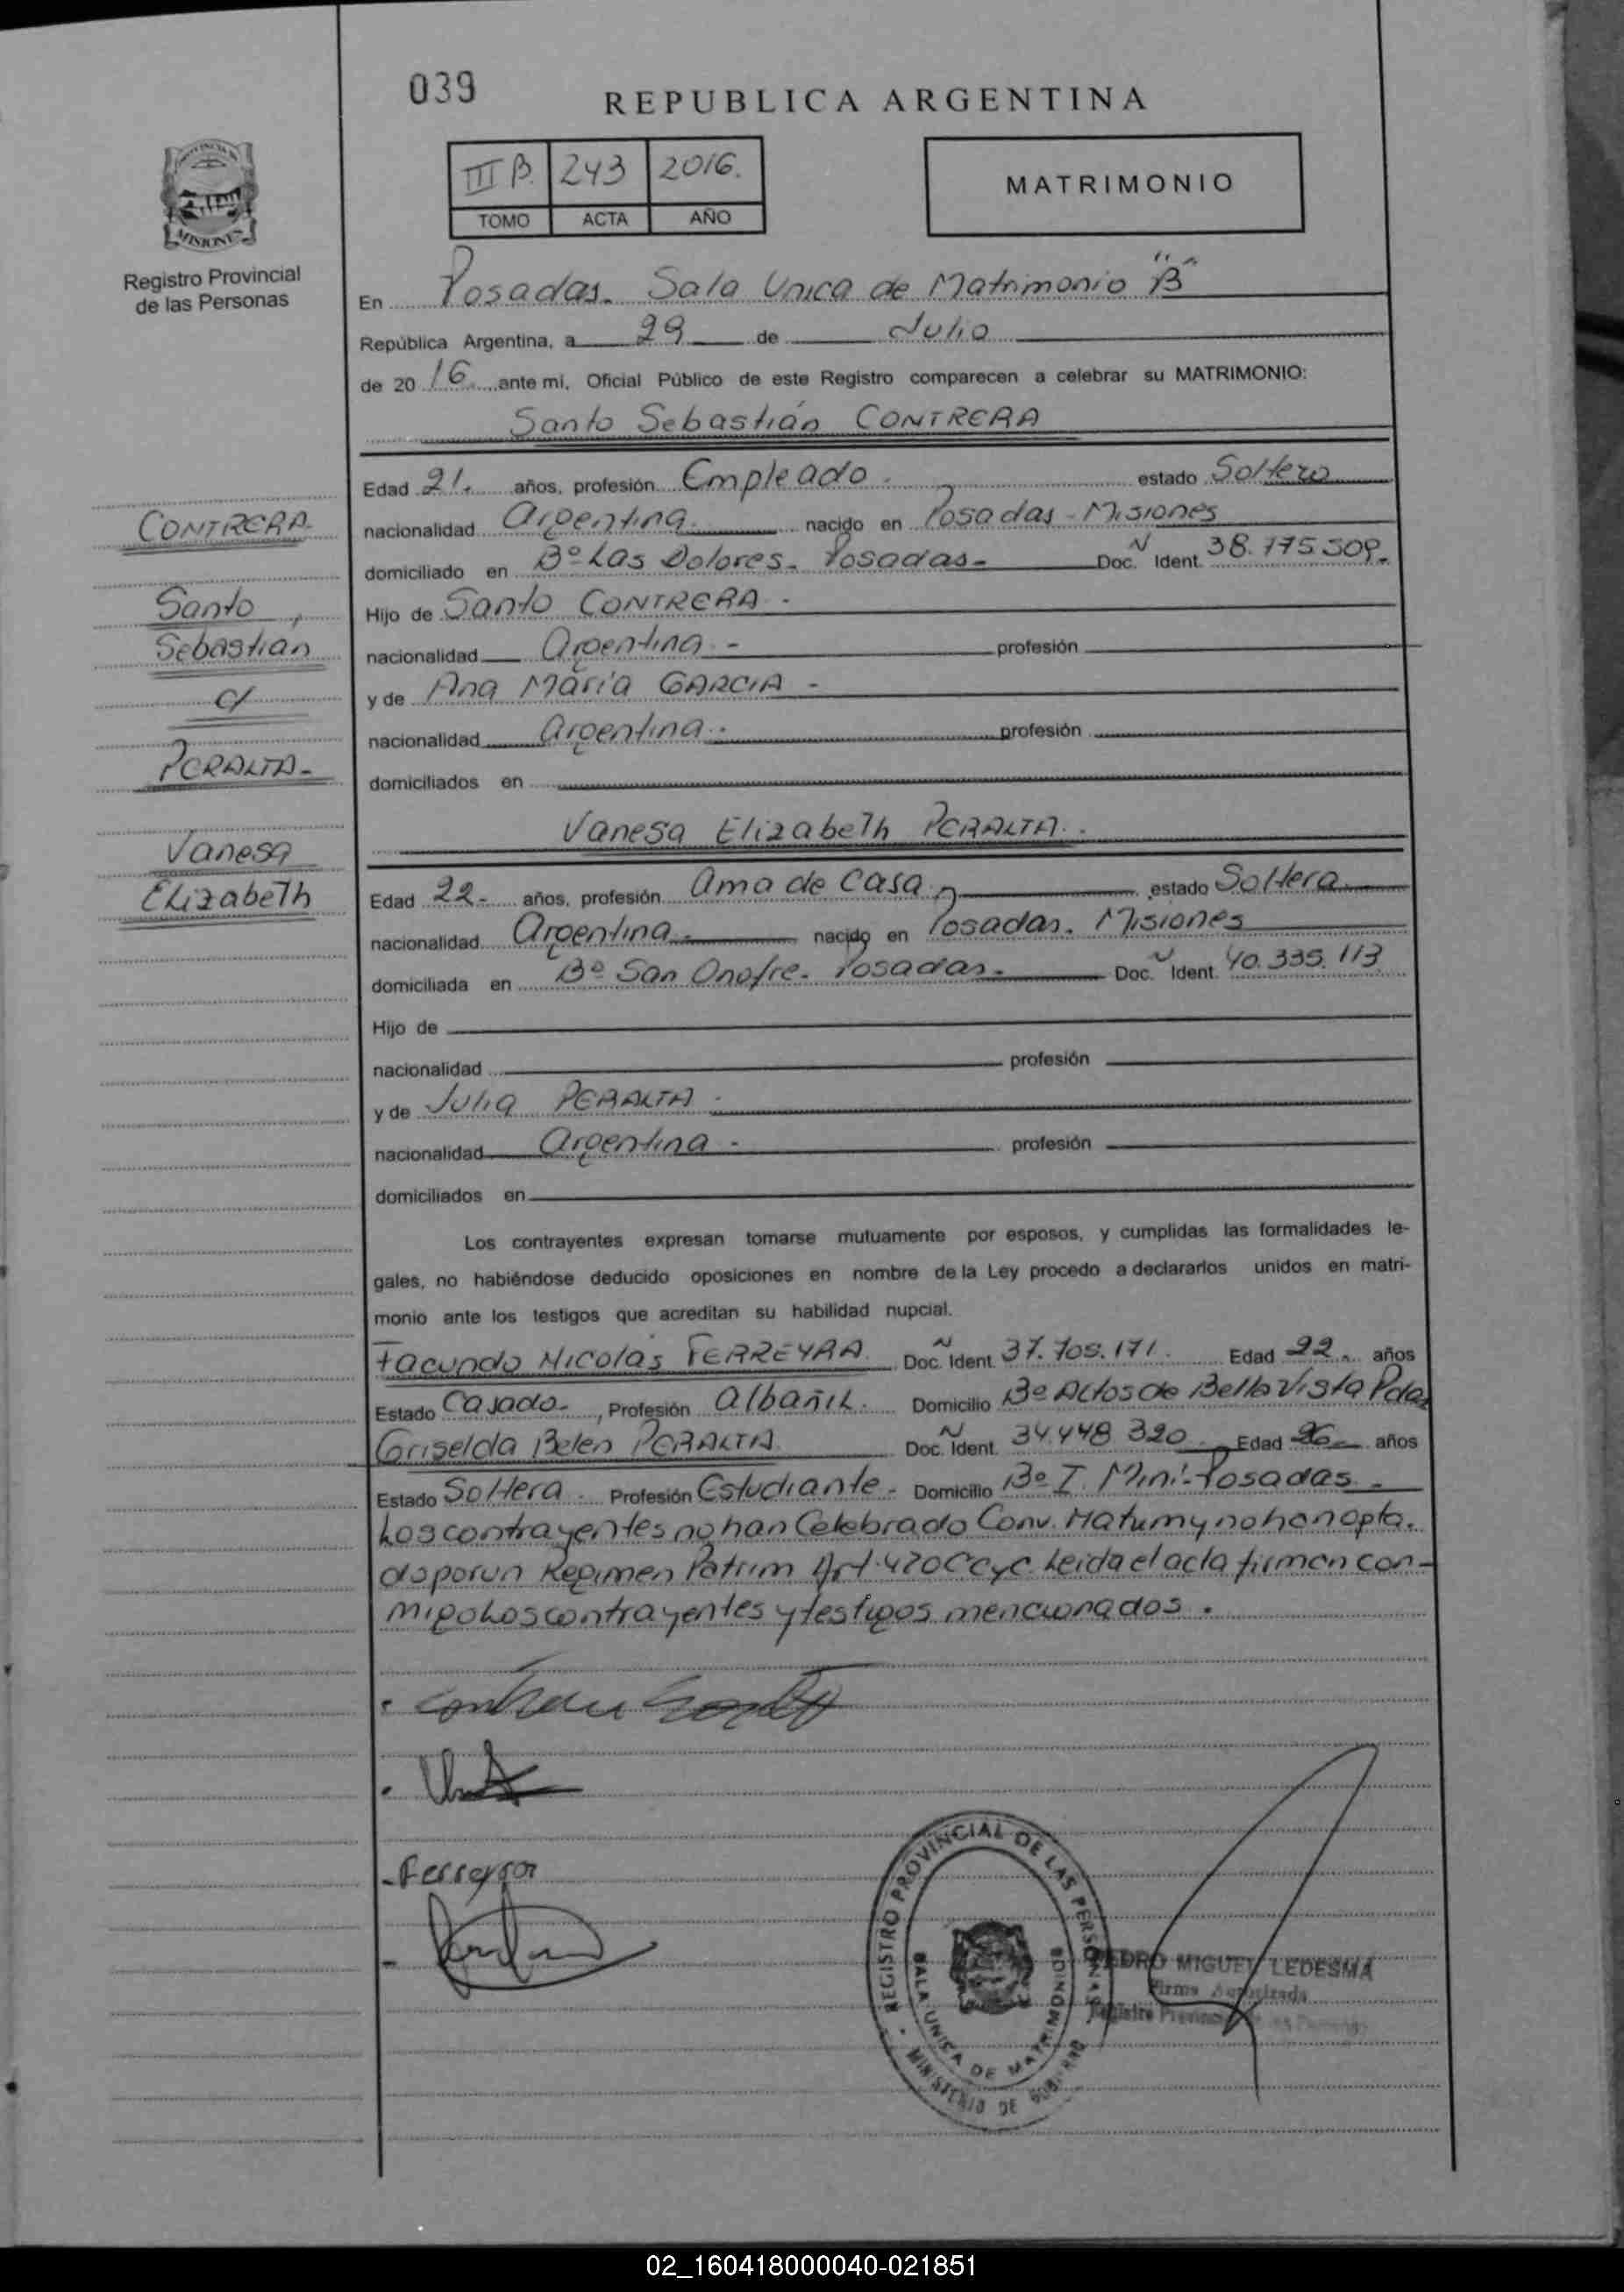 039
REPUBLICA ARGENTINA
III B. 243 2016.
TOMO ACTA AÑO
MATRIMONIO
MISIONES
Registro Provincial
de las Personas
En Posadas. Sala Unica de Matrimonio "B"
República Argentina, a 29 de Julio
de 20 16 ante mi, Oficial Público de este Registro comparecen a celebrar su MATRIMONIO:
Santo Sebastián CONTRERA
Edad 21. años, profesión Empleado. estado Soltero
nacionalidad Argentina. nacido en Posadas - Misiones
domiciliado en Bº Las Dolores. Posadas- Doc. N Ident. 38.775.509.-
Hijo de Santo CONTRERA -
nacionalidad Argentina - profesión
y de Ana María GARCIA -
nacionalidad Argentina. profesión
domiciliados en
Vanesa Elizabeth PERALTA.
Edad 22- años, profesión Ama de Casa. estado Soltera
nacionalidad Argentina. nacido en Posadas. Misiones
domiciliada en Bº San Onofre. Posadas. Doc. N Ident. 40.335.113
Hijo de
nacionalidad profesión
y de Julia PERALTA
nacionalidad Argentina - profesión
domiciliados en
CONTRERA
Santo,
Sebastian
c/
PERALTA-
Vanesa
Elizabeth
Los contrayentes expresan tomarse mutuamente por esposos, y cumplidas las formalidades le-
gales, no habiéndose deducido oposiciones en nombre de la Ley procedo a declararlos unidos en matri-
monio ante los testigos que acreditan su habilidad nupcial.
Facundo Nicolás FERREYRA. Doc. N Ident. 37.705.171. Edad 22. años
Estado Casado-, Profesión Albañil. Domicilio Bº Altos de Bella Vista Pdas
Griselda Belen PERALTA. Doc. N Ident. 34.448.320 Edad 26 años
Estado Soltera. Profesión Estudiante- Domicilio Bº I. Mini-Posadas.-
Los contrayentes no han Celebrado Conv. Matrim y no han opta.
do por un Regimen Patrim Art. 420 CCyC. Leida el acta firman con-
migo Los contrayentes y testigos mencionados.
Contrera Santo
Ferreyra
REGISTRO PROVINCIAL DE LAS PERSONAS
SALA UNICA DE MATRIMONIOS
MINISTERIO DE GOBIERNO
PEDRO MIGUEL LEDESMA
Firma Autorizada
Registro Provincial de las Personas
02_160418000040-021851